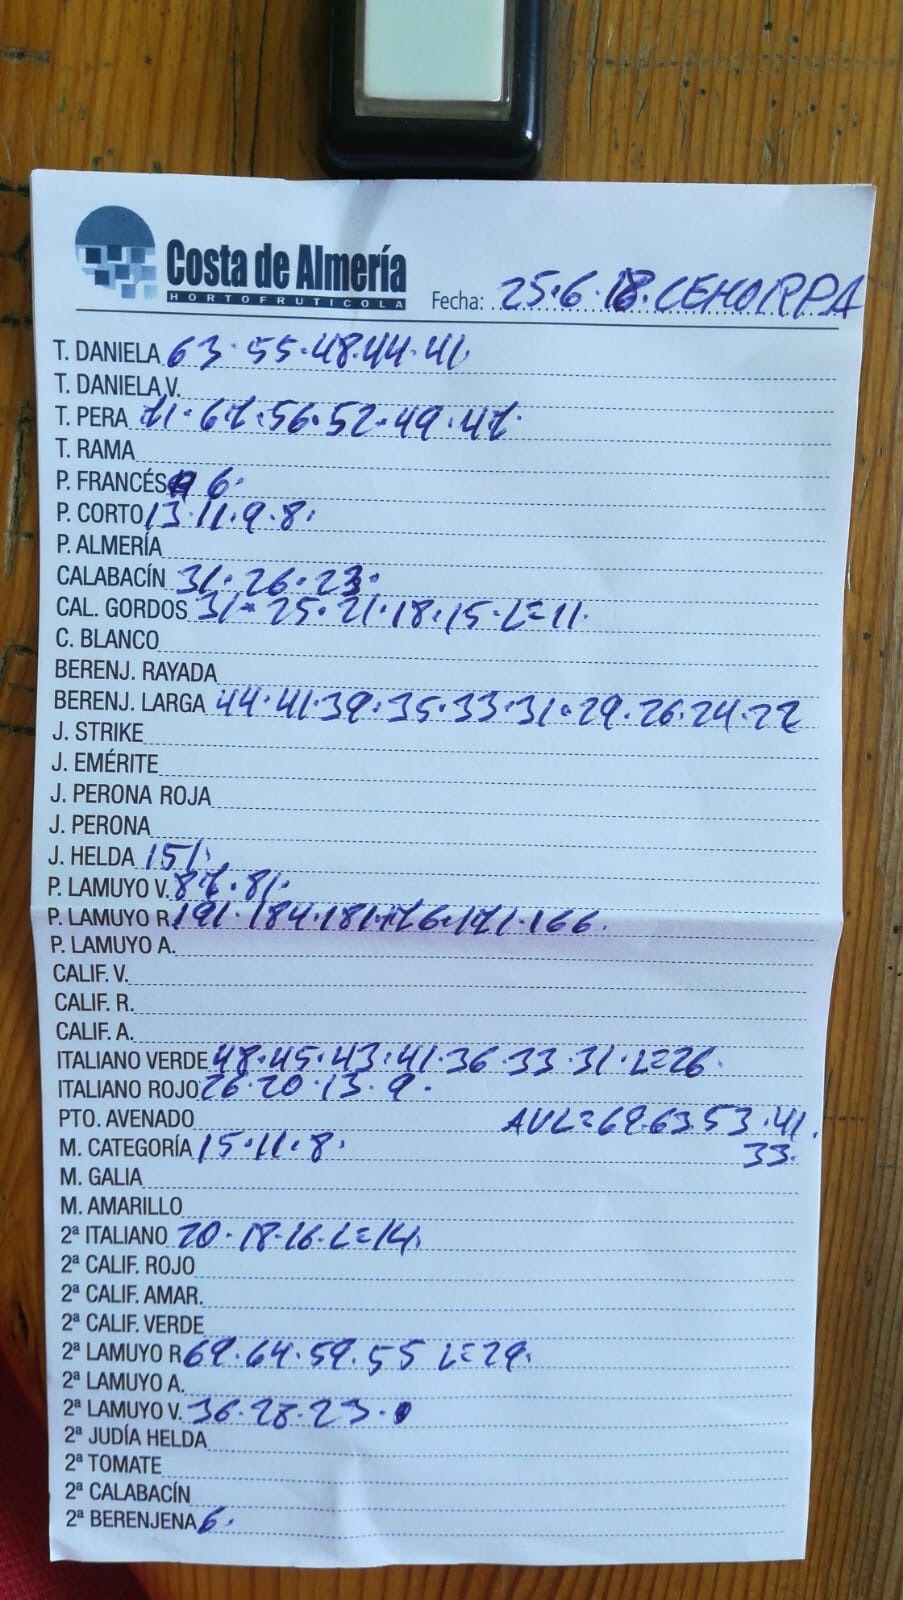 Costa de Almería
HORTOFRUTICOLA
Fecha: 25·6·18. CEHORPA
T. DANIELA 63·55·48·44·41·
T. DANIELA V.
T. PERA 71·67·56·52·49·47·
T. RAMA
P. FRANCÉS 6·
P. CORTO 13·11·9·8·
P. ALMERÍA
CALABACÍN 31·26·23·
CAL. GORDOS 31·25·21·18·15·L=11·
C. BLANCO
BERENJ. RAYADA
BERENJ. LARGA 44·41·39·35·33·31·29·26·24·22
J. STRIKE
J. EMÉRITE
J. PERONA ROJA
J. PERONA
J. HELDA 151·
P. LAMUYO V. 87·81·
P. LAMUYO R. 191·184·181·176·171·166.
P. LAMUYO A.
CALIF. V.
CALIF. R.
CALIF. A.
ITALIANO VERDE 48·45·43·41·36·33·31·L=26·
ITALIANO ROJO 26·20·13·9·
PTO. AVENADO AVL=69·63·53·41.
M. CATEGORÍA 15·11·8· 33·
M. GALIA
M. AMARILLO
2ª ITALIANO 20·18·16·L=14·
2ª CALIF. ROJO
2ª CALIF. AMAR.
2ª CALIF. VERDE
2ª LAMUYO R 69·64·59·55 L=29·
2ª LAMUYO A.
2ª LAMUYO V. 36·28·23·
2ª JUDÍA HELDA
2ª TOMATE
2ª CALABACÍN
2ª BERENJENA 6·